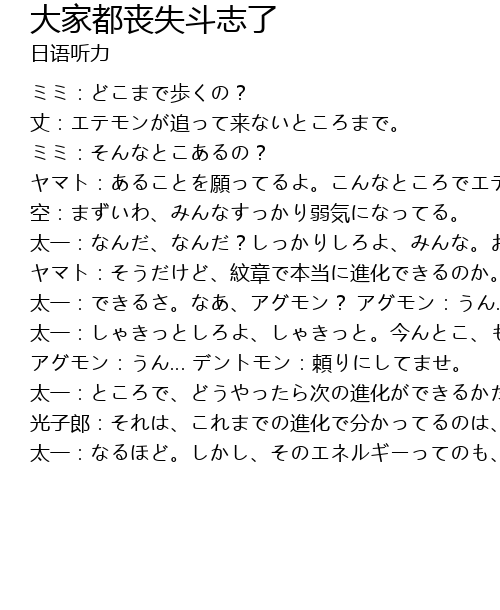 大家都丧失斗志了
日语听力
ミミ：どこまで歩くの？
丈：エテモンが追って来ないところまで。
ミミ：そんなとこあるの？
ヤマト：あることを願ってるよ。こんなところでエテ
空：まずいわ、みんなすっかり弱気になってる。
太一：なんだ、なんだ？しっかりしろよ、みんな。お
ヤマト：そうだけど、紋章で本当に進化できるのか。
太一：できるさ。なあ、アグモン？ アグモン：うん..
太一：しゃきっとしろよ、しゃきっと。今んとこ、も
アグモン：うん... デントモン：頼りにしてませ。
太一：ところで、どうやったら次の進化ができるかだ
光子郎：それは、これまでの進化で分かってるのは、
太一：なるほど。しかし、そのエネルギーってのも、